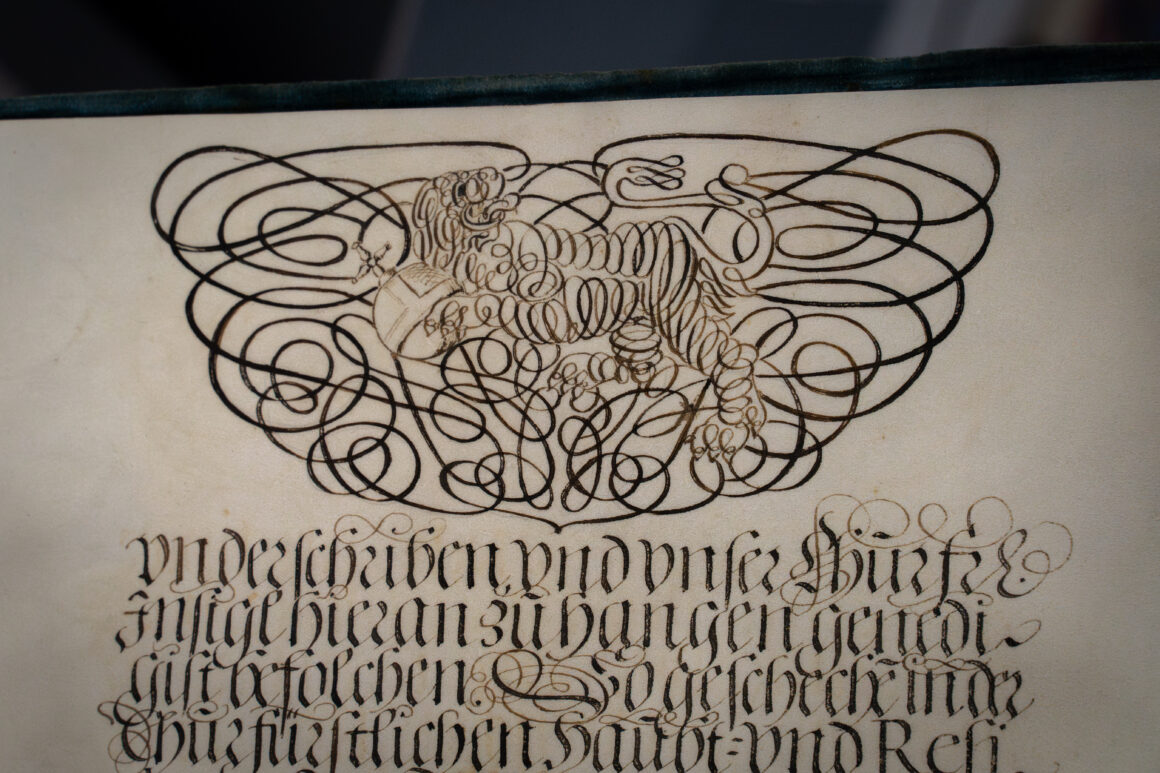 vnderschriben, vnd vnser Churfrl.
Jnsigl hieran zu hangen genedi
gist befolchen. So geschechen in der
Churfürstlichen Haubt= vnd Resi